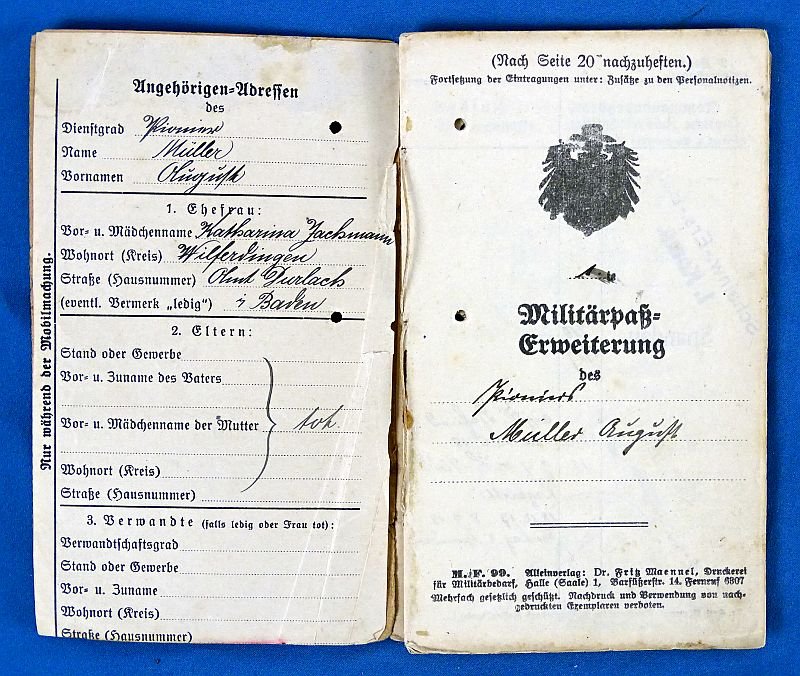 Nur während der Mobilmachung.
Angehörigen-Adressen
des
Dienstgrad Pionier
Name Müller
Vornamen August
1. Ehefrau:
Vor- u. Mädchenname Katharina Jackmann
Wohnort (Kreis) Wilferdingen
Straße (Hausnummer) Amt Durlach
(eventl. Vermerk „ledig“) i Baden
2. Eltern:
Stand oder Gewerbe
Vor- u. Zuname des Vaters
Vor- u. Mädchenname der Mutter tot
Wohnort (Kreis)
Straße (Hausnummer)
3. Verwandte (falls ledig oder Frau tot):
Verwandtschaftsgrad
Stand oder Gewerbe
Vor- u. Zuname
Wohnort (Kreis)
Straße (Hausnummer)
(Nach Seite 20 nachzuheften.)
Fortsetzung der Eintragungen unter: Zusätze zu den Personalnotizen.
1 te
Militärpaß-
Erweiterung
des
Pioniers
Müller August
M. F. 99. Alleinverlag: Dr. Fritz Maennel, Druckerei
für Militärbedarf, Halle (Saale) 1, Barfüßerstr. 14. Fernruf 6307
Mehrfach gesetzlich geschützt. Nachdruck und Verwendung von nach-
gedruckten Exemplaren verboten.